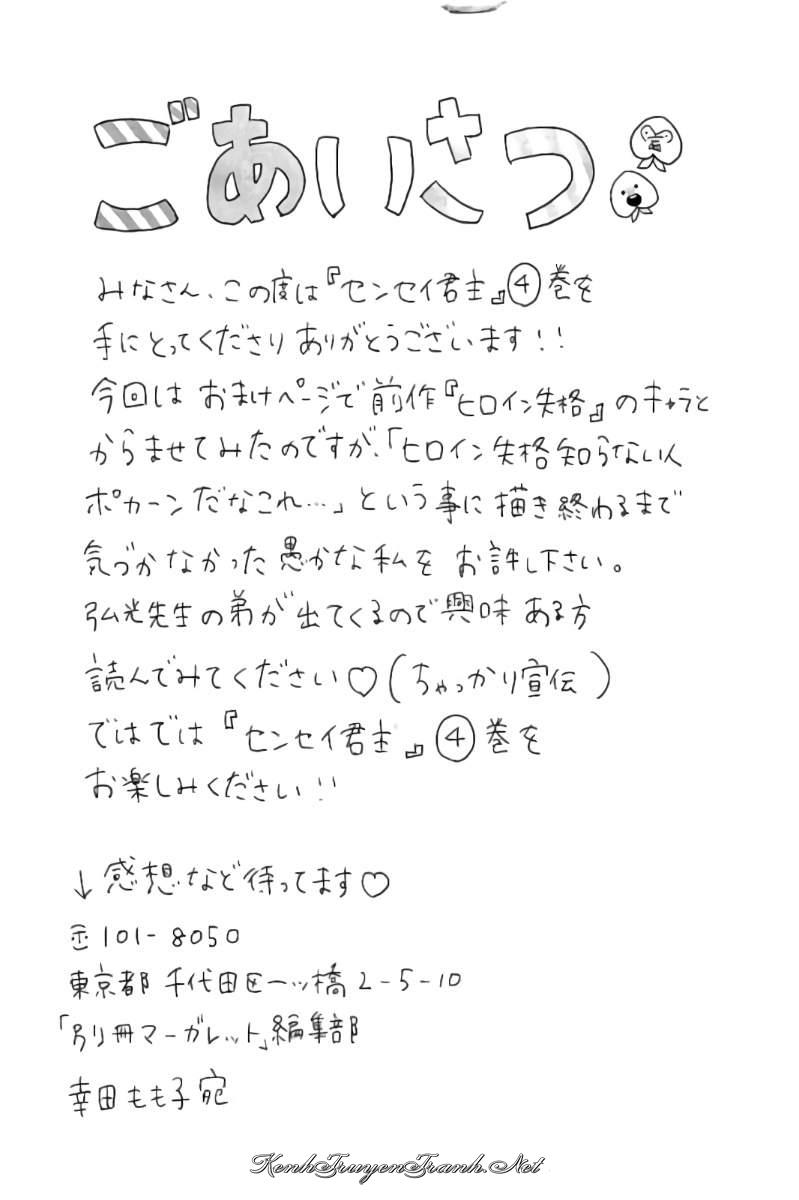 ごあいさつ
みなさん、この度は『センセイ君主』④巻を
手にとってくださりありがとうございます!!
今回はおまけページで前作『ヒロイン失格』のキャラと
からませてみたのですが、「ヒロイン失格知らない人
ポカーンだなこれ…」という事に描き終わるまで
気づかなかった愚かな私をお許し下さい。
弘光先生の弟が出てくるので興味ある方
読んでみてください♡(ちゃっかり宣伝)
ではでは『センセイ君主』④巻を
お楽しみください!!
↓感想など待ってます♡
〒101-8050
東京都千代田区一ッ橋2-5-10
「別冊マーガレット」編集部
幸田もも子宛
KenhTruyenTranh.Net